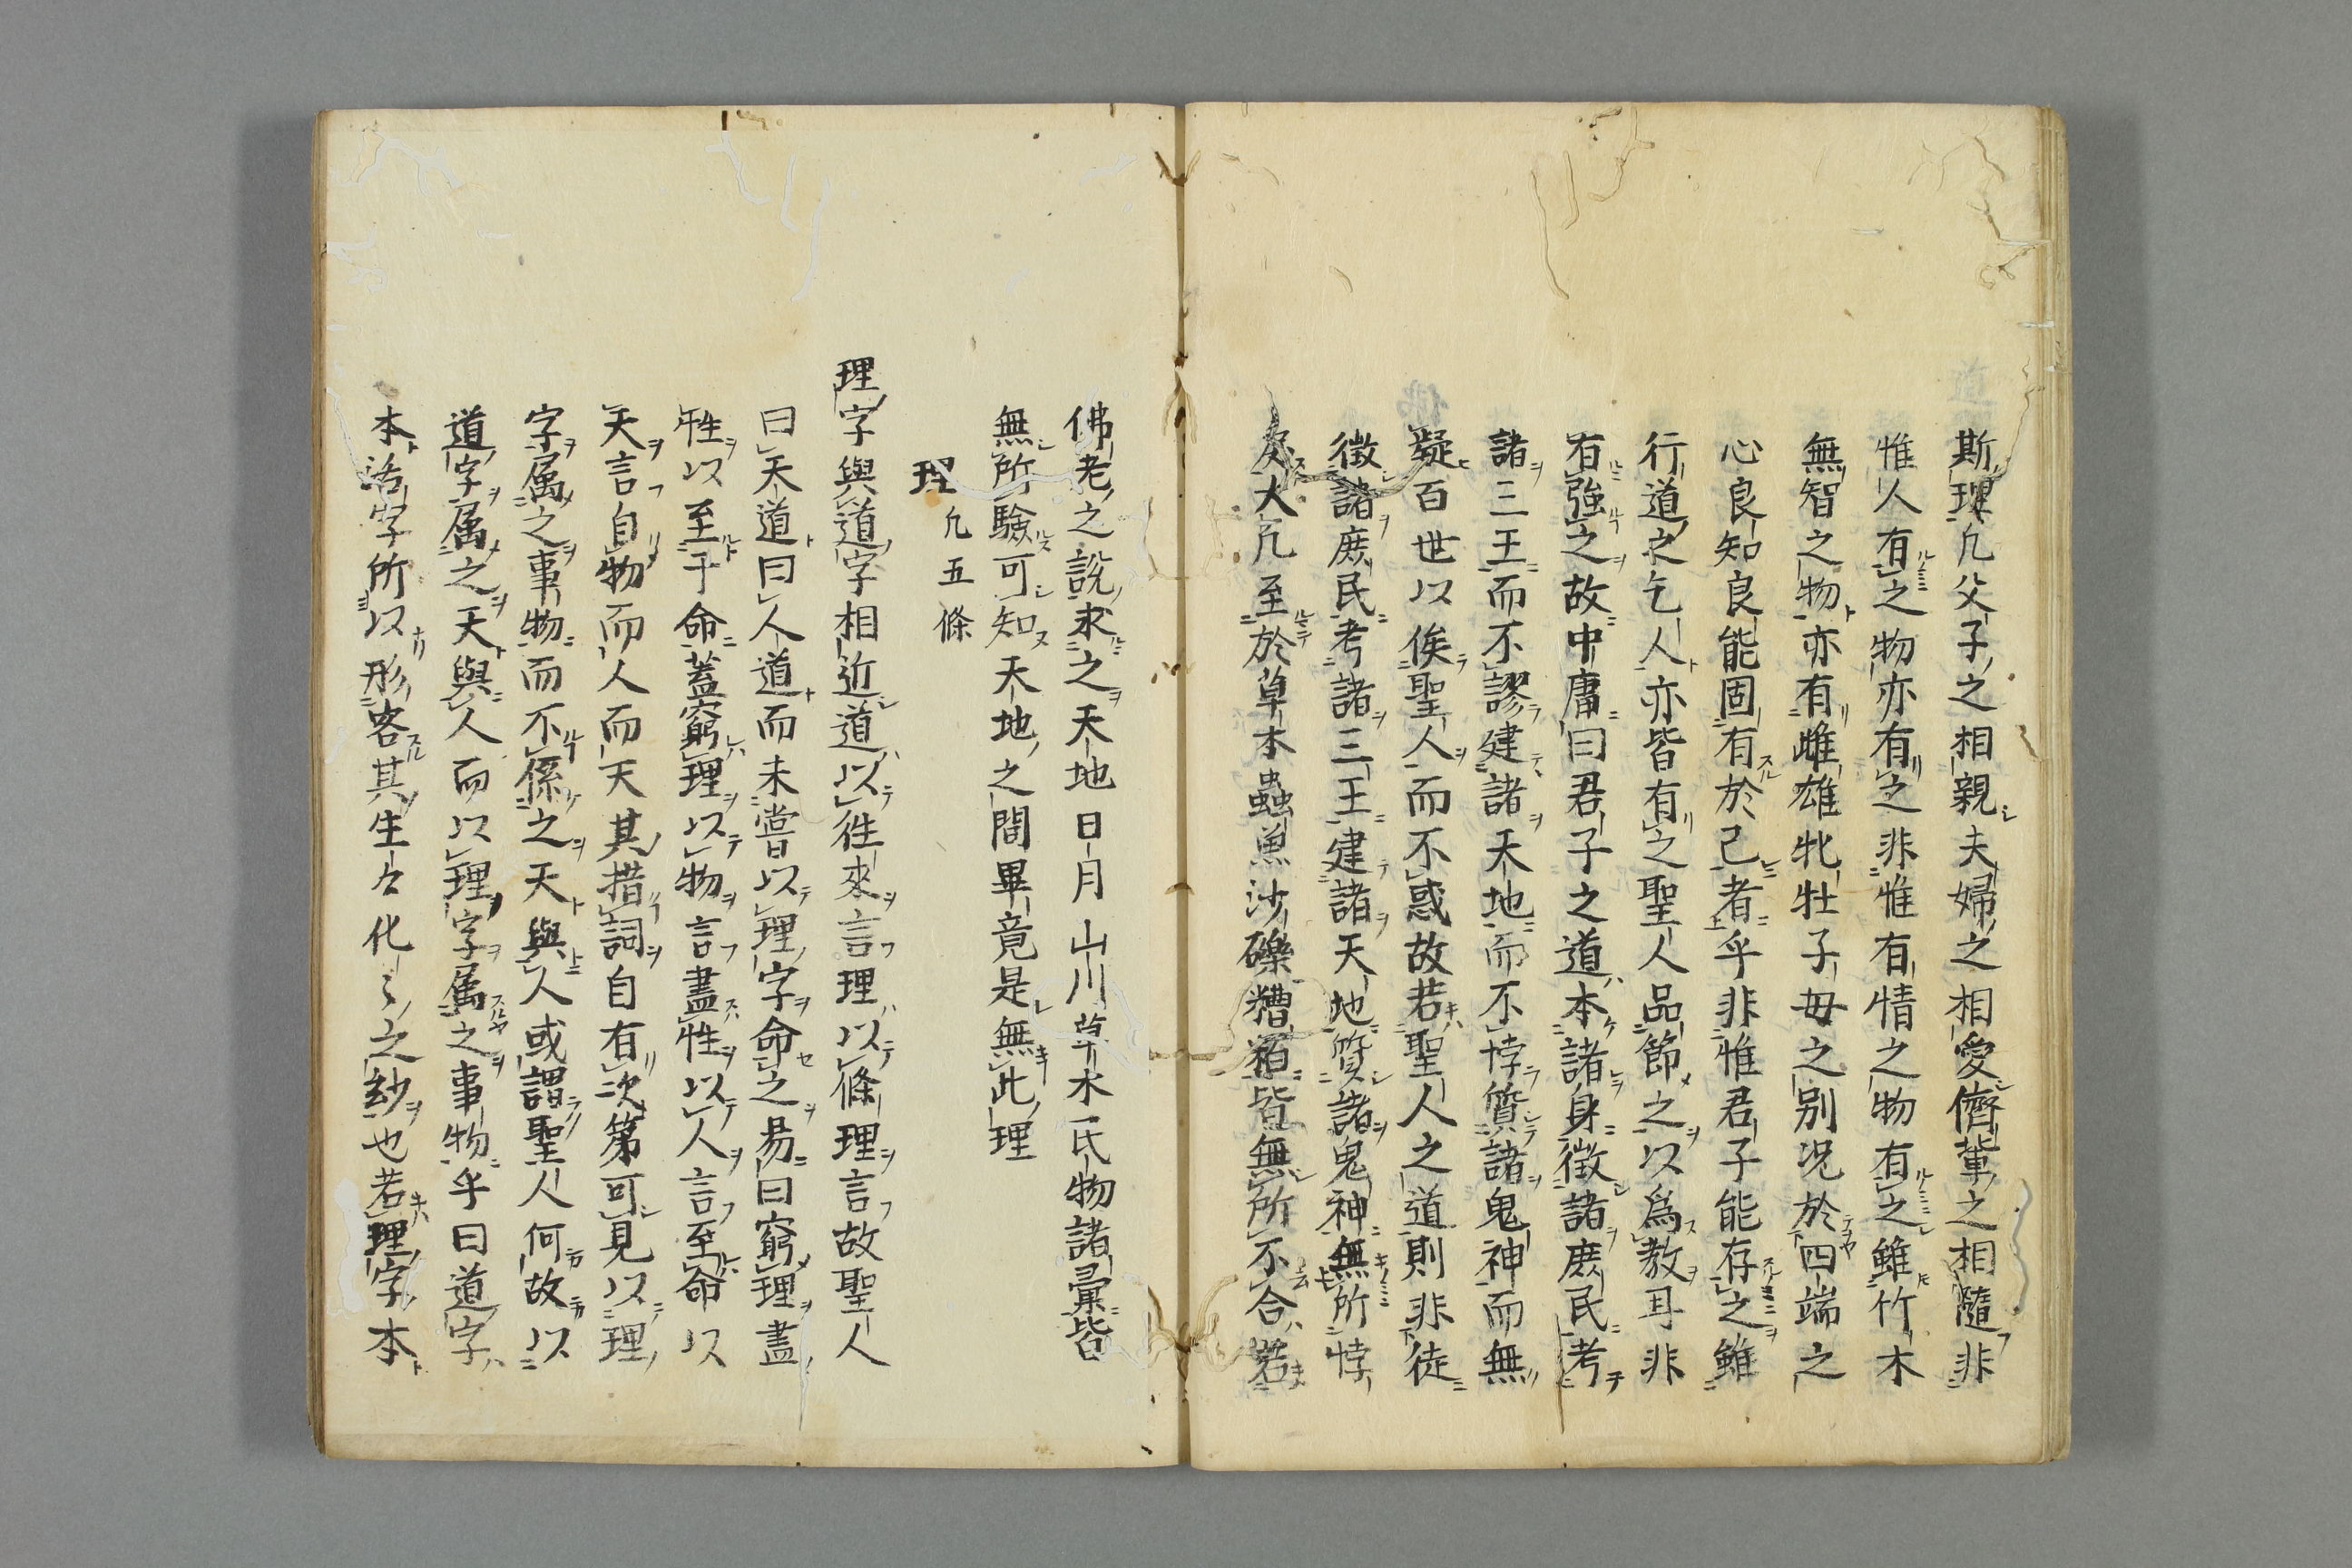 斯理凡父子之相親夫婦之相愛儕輩之相隨非
惟人有之物亦有之非惟有情之物有之雖竹木
無智之物亦有雌雄牝牡子母之別况於四端之
心良知良能固有於己者乎非惟君子能存之雖
行道之乞人亦皆有之聖人品節之以爲教耳非
有強之故中庸曰君子之道本諸身徵諸庶民考
諸三王而不謬建諸天地而不悖質諸鬼神而無
疑百世以俟聖人而不惑故若聖人之道則非徒
徵諸庶民考諸三王建諸天地質諸鬼神無所悖
戾大凡至於草木蟲魚沙礫糟粕皆無所不合若
佛老之說求之天地日月山川草木民物諸彙皆
無所驗可知天地之間畢竟是無此理
理 凡五條
理字與道字相近道以徃來言理以條理言故聖人
曰天道曰人道而未嘗以理字命之易曰窮理盡
性以至于命蓋窮理以物言盡性以人言至命以
天言自物而人而天其措詞自有次第可見以理
字属之事物而不係之天與人或謂聖人何故以
道字属之天與人而以理字属之事物乎曰道字
本活字所以形容其生々化〻之紗也若理字本